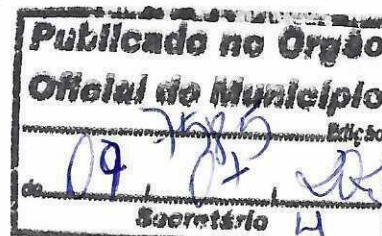 Publicado no Orgão
Oficial do Município
7585 Edição
de 09 / 07 /
Secretário